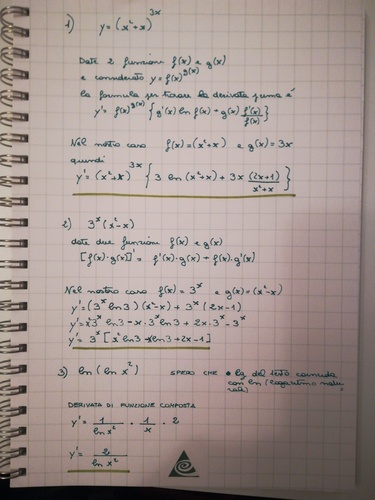 1) y = (x²+x)^3x
Date 2 funzioni f(x) e g(x)
e considerato y = f(x)^g(x)
la formula per trovare la derivata prima è
y' = f(x)^g(x) { g'(x) ln f(x) + g(x) f'(x)/f(x) }
Nel nostro caso f(x) = (x²+x) e g(x) = 3x
quindi
y' = (x²+x)^3x { 3 ln (x²+x) + 3x (2x+1)/(x²+x) }
2) 3^x (x²-x)
date due funzioni f(x) e g(x)
[f(x)·g(x)]' = f'(x)·g(x) + f(x)·g'(x)
Nel nostro caso f(x) = 3^x e g(x) = (x²-x)
y' = (3^x ln3)(x²-x) + 3^x (2x-1)
y' = x²3^x ln3 - x·3^x ln3 + 2x·3^x - 3^x
y' = 3^x [x² ln3 - x ln3 + 2x - 1]
3) ln (ln x²) SPERO CHE lg del testo coincida
con ln (logaritmo natu
rale)
DERIVATA DI FUNZIONE COMPOSTA
y' = 1/ln x² · 1/x · 2
y' = 2/ln x²